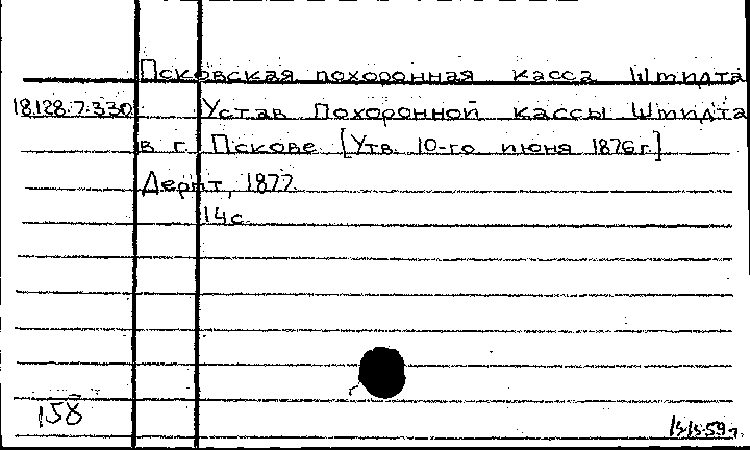 Псковская похоронная касса Штидта
18.128.7.330 Устав Похоронной кассы Штидта
в г. Пскове [Утв. 10-го июня 1876 г.]
Дерпт, 1877.
14 с.
158